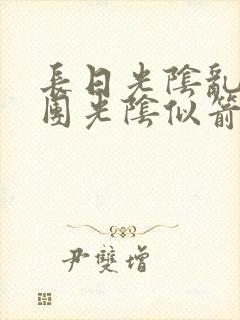 長日光陰亂
團光陰似箭
尹雙增